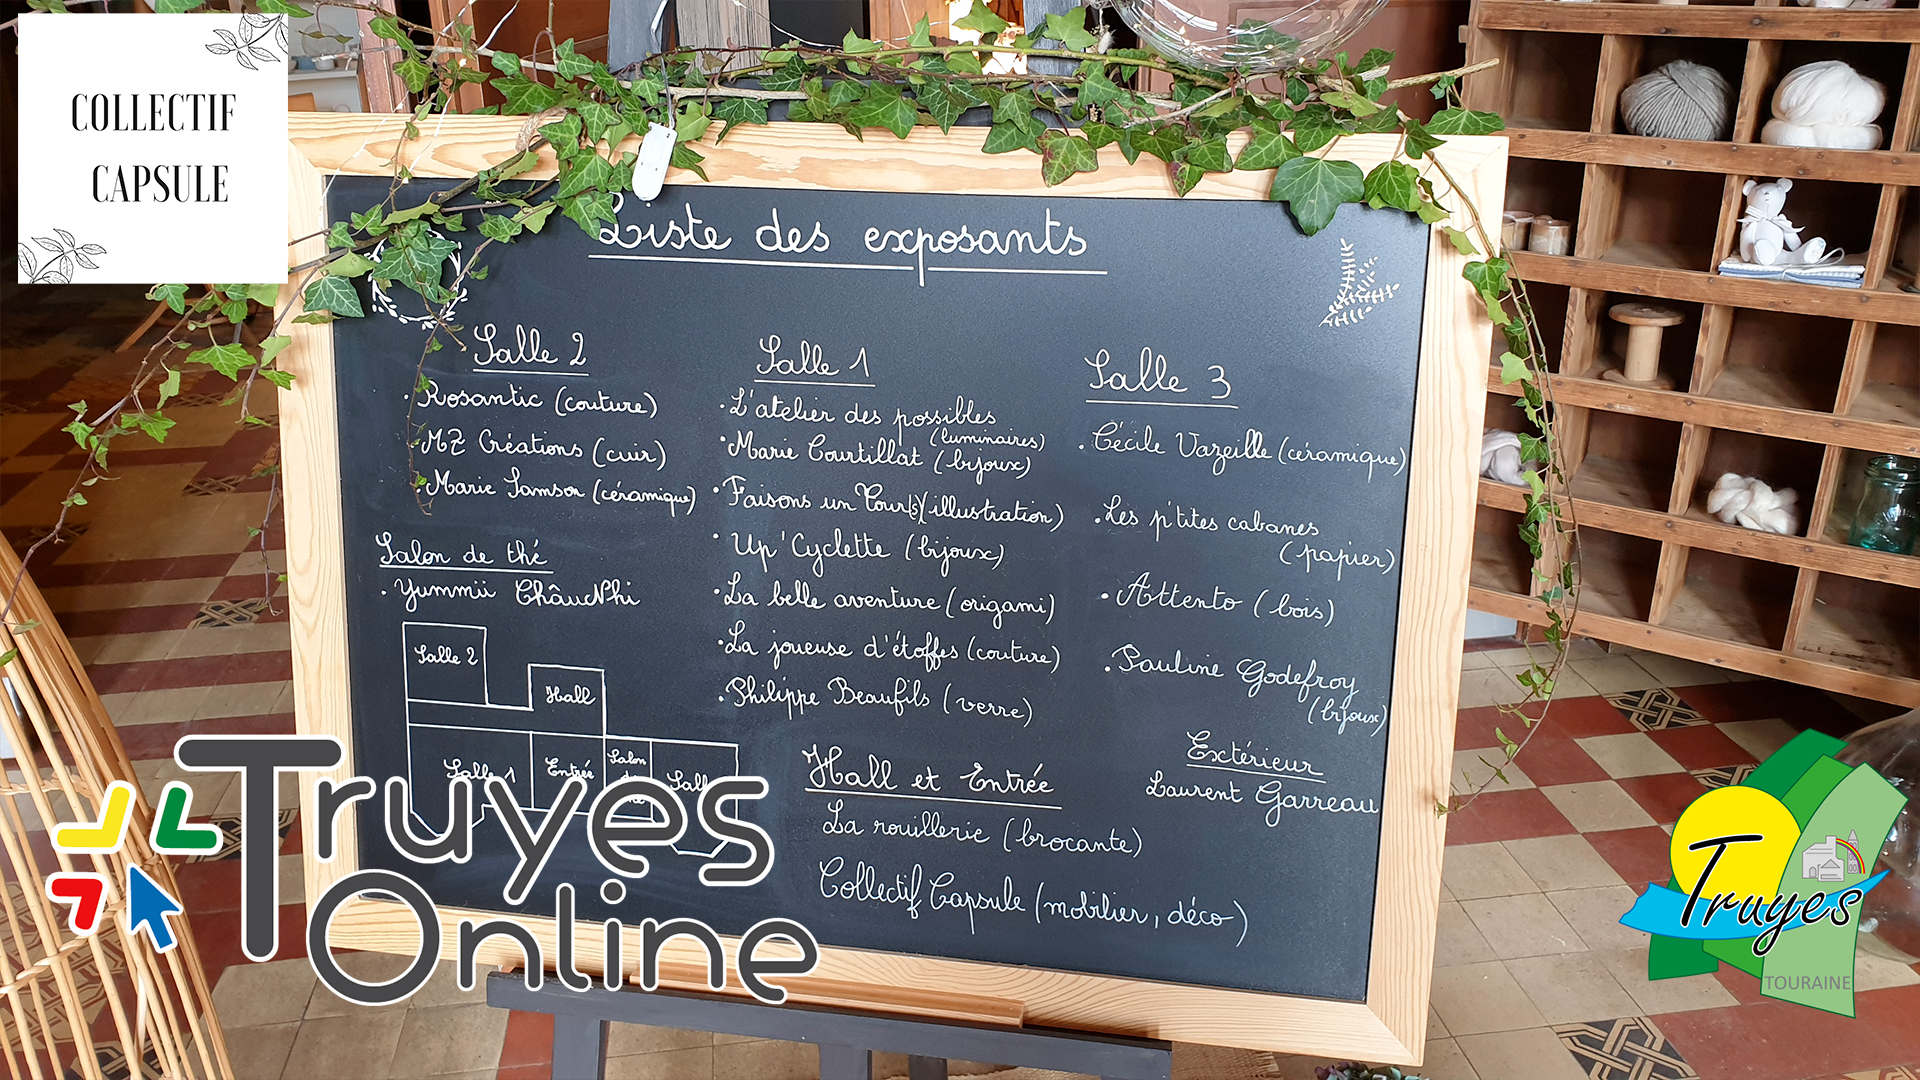 COLLECTIF
CAPSULE
Liste des exposants
Salle 2
. Rosantic (couture)
. MZ Créations (cuir)
. Marie Samson (céramique)
Salon de thé
. Yummii ChâuNhi
Salle 1
. L'atelier des possibles
(luminaires)
. Marie Courtillat (bijoux)
. Faisons un Tour(s) (illustration)
. Up'Cyclette (bijoux)
. La belle aventure (origami)
. La joueuse d'étoffes (couture)
. Philippe Beaufils (verre)
Salle 3
. Cécile Vazeille (céramique)
. Les p'tites cabanes
(papier)
. Attento (bois)
. Pauline Godefroy
(bijoux)
Extérieur
Laurent Garreau
Hall et Entrée
La rouillerie (brocante)
Collectif Capsule (mobilier, déco)
Salle 2
Hall
Salle 1
Entrée
Salon
Salle
Truyes
Online
Truyes
TOURAINE